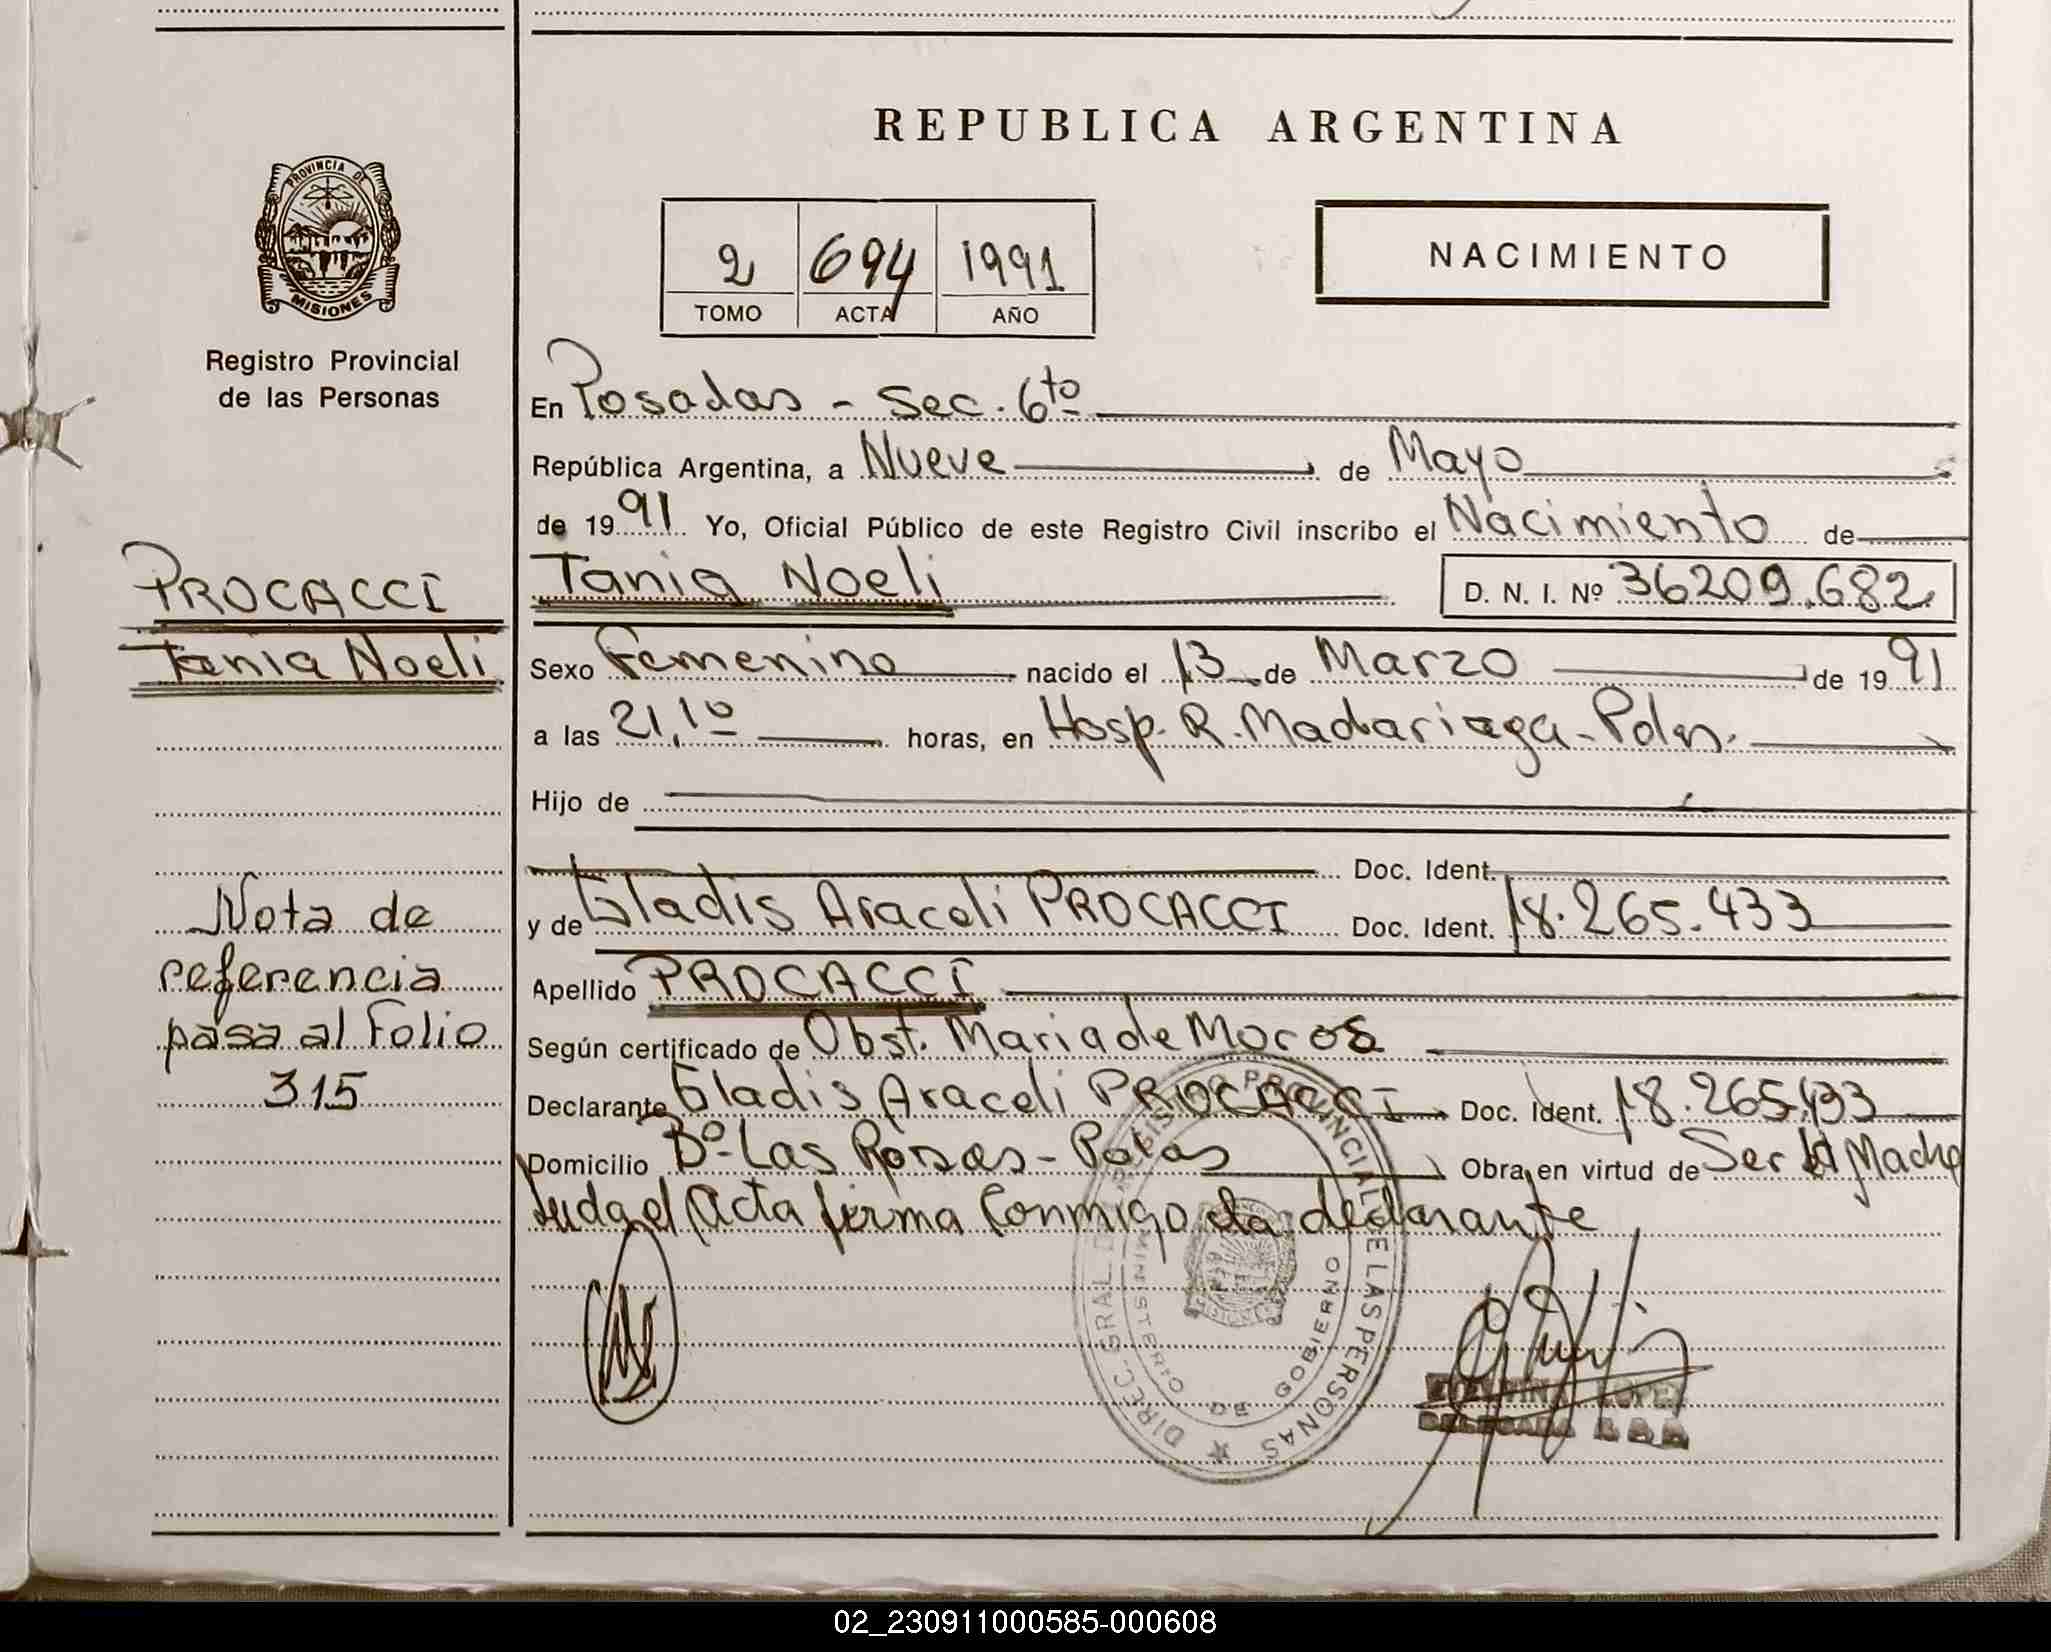 REPUBLICA ARGENTINA
PROVINCIA DE
MISIONES
Registro Provincial
de las Personas
2 694 1991
TOMO ACTA AÑO
NACIMIENTO
En Posadas - Sec. 6to
República Argentina, a Nueve de Mayo
de 1991 Yo, Oficial Público de este Registro Civil inscribo el Nacimiento de
PROCACCI
Tania Noeli
Tania Noeli D. N. I. Nº 36209.682
Sexo Femenino nacido el 13 de Marzo de 1991
a las 21,10 horas, en Hosp. R. Madariaga - Pdas.
Hijo de
Doc. Ident.
y de Gladis Araceli PROCACCI Doc. Ident. 18.265.433
Apellido PROCACCI
Según certificado de Obst. Maria de Moros
Declarante Gladis Araceli PROCACCI Doc. Ident. 18.265.433
Domicilio Bº Las Rosas - Pdas Obra en virtud de Ser la Madre
Leida el Acta firma Conmigo la declarante
Nota de
referencia
pasa al Folio
315
DIREC. GRAL. DE REGISTRO PROVINCIAL DE LAS PERSONAS
MINISTERIO DE GOBIERNO
MISIONES
LOPEZ
DELEGADA
02_230911000585-000608